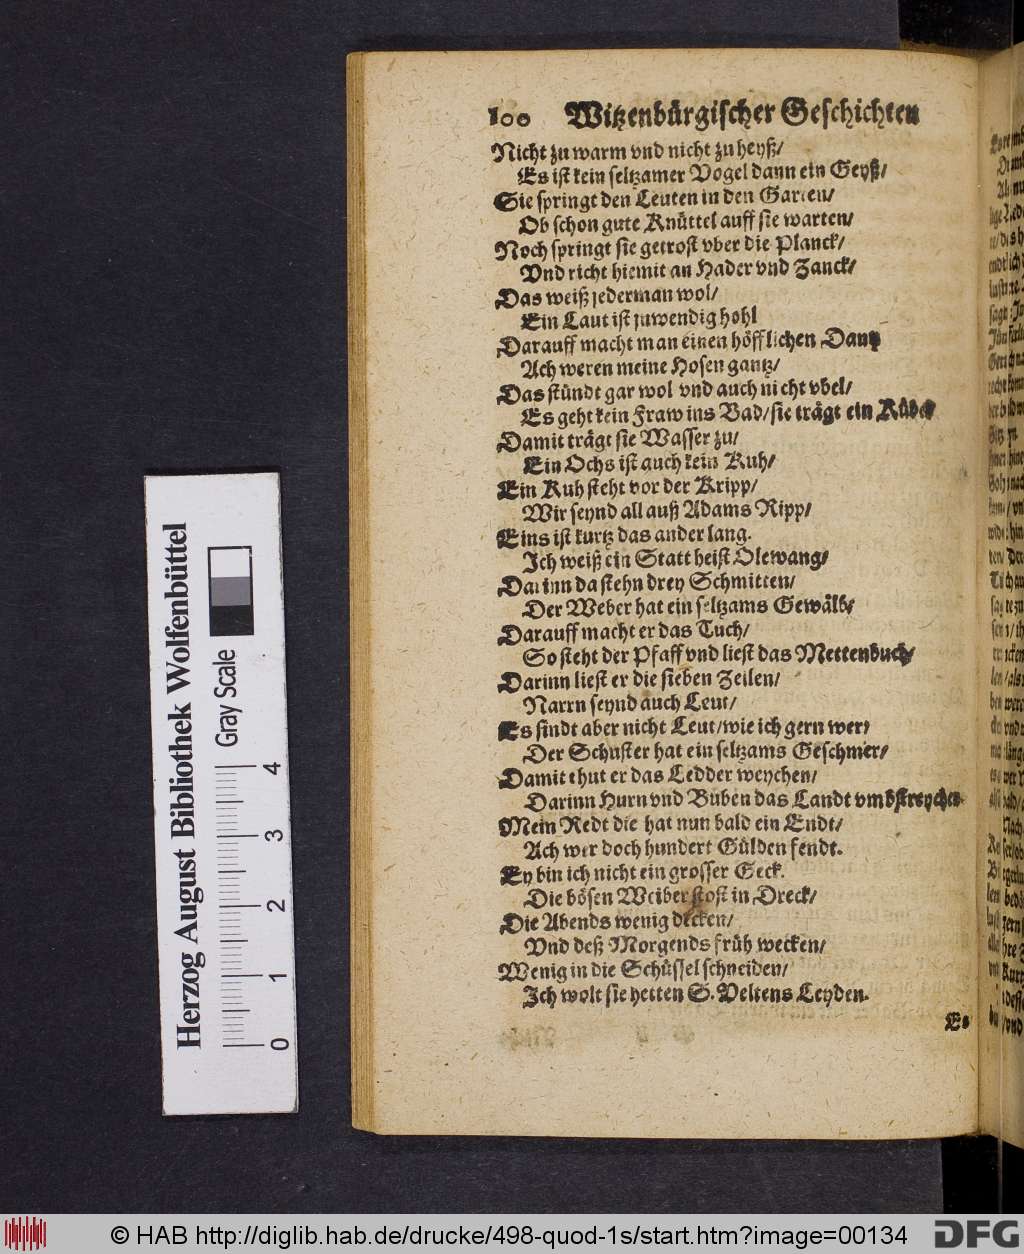 100 Witzenbürgischer Geschichten
Nicht zu warm vnd nicht zu heyß/
Es ist kein seltzamer Vogel dann ein Geyß/
Sie springt den Leuten in den Garten/
Ob schon gute Knüttel auff sie warten/
Noch springt sie getrost vber die Planck/
Vnd richt hiemit an Hader vnd Zanck/
Das weiß jederman wol/
Ein Laut ist juwendig hohl
Darauff macht man einen höfflichen Dantz
Ach weren meine Hosen gantz/
Das stündt gar wol vnd auch nicht vbel/
Es geht kein Fraw ins Bad/ sie trägt ein Kübel
Damit trägt sie Wasser zu/
Ein Ochs ist auch kein Kuh/
Ein Kuh steht vor der Kripp/
Wir seynd all auß Adams Ripp/
Eins ist kurtz das ander lang.
Ich weiß ein Statt heist Olewang/
Darinn da stehn drey Schmitten/
Der Weber hat ein seltzams Gewälb/
Darauff macht er das Tuch/
So steht der Pfaff vnd liest das Mettenbuch/
Darinn liest er die sieben Zeilen/
Narrn seynd auch Leut/
Es sindt aber nicht Leut/ wie ich gern wer/
Der Schuster hat ein seltzams Geschmer/
Damit thut er das Ledder weychen/
Darinn Hurn vnd Buben das Landt vmbstreychen
Mein Redt die hat nun bald ein Endt/
Ach wer doch hundert Gülden fendt.
Ey bin ich nicht ein grosser Geck.
Die bösen Weiber stost in Dreck/
Die Abends wenig decken/
Vnd deß Morgends früh wecken/
Wenig in die Schüssel schneiden/
Ich wolt sie hetten S. Veltens Leyden.
Es
Herzog August Bibliothek Wolfenbüttel
Gray Scale
0 1 2 3 4
© HAB http://diglib.hab.de/drucke/498-quod-1s/start.htm?image=00134
DFG